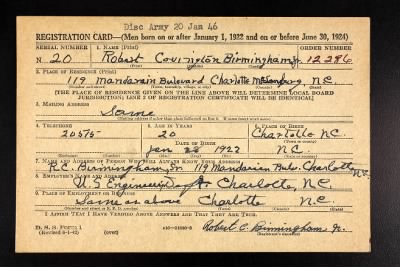 Disc Army 20 Jan 46
REGISTRATION CARD—(Men born on or after January 1, 1922 and on or before June 30, 1924)
SERIAL NUMBER 1. NAME (Print) ORDER NUMBER
N 20 Robert Covington Birmingham, Jr. 12286
2. PLACE OF RESIDENCE (Print)
119 Mandarain Bulevard Charlotte Mecklenburg, N.C.
[THE PLACE OF RESIDENCE GIVEN ON THE LINE ABOVE WILL DETERMINE LOCAL BOARD
JURISDICTION; LINE 2 OF REGISTRATION CERTIFICATE WILL BE IDENTICAL]
3. MAILING ADDRESS
Same
[Mailing address if other than place indicated on line 2. If same insert word same]
4. TELEPHONE 5. AGE IN YEARS 6. PLACE OF BIRTH
20575 20 Charlotte N.C.
DATE OF BIRTH
Jan 28 1922 N.C.
7. NAME AND ADDRESS OF PERSON WHO WILL ALWAYS KNOW YOUR ADDRESS
R.C. Birmingham, Sr. 119 Mandarian Charlotte N.C.
8. EMPLOYER'S NAME AND ADDRESS
U.S Engineering Charlotte, N.C.
9. PLACE OF EMPLOYMENT OR BUSINESS
Same as above Charlotte N.C.
I AFFIRM THAT I HAVE VERIFIED ABOVE ANSWERS AND THAT THEY ARE TRUE.
D. S. S. FORM 1
(Revised 6-1-42) (over)
Robert C. Birmingham Jr.
(Registrant's signature)